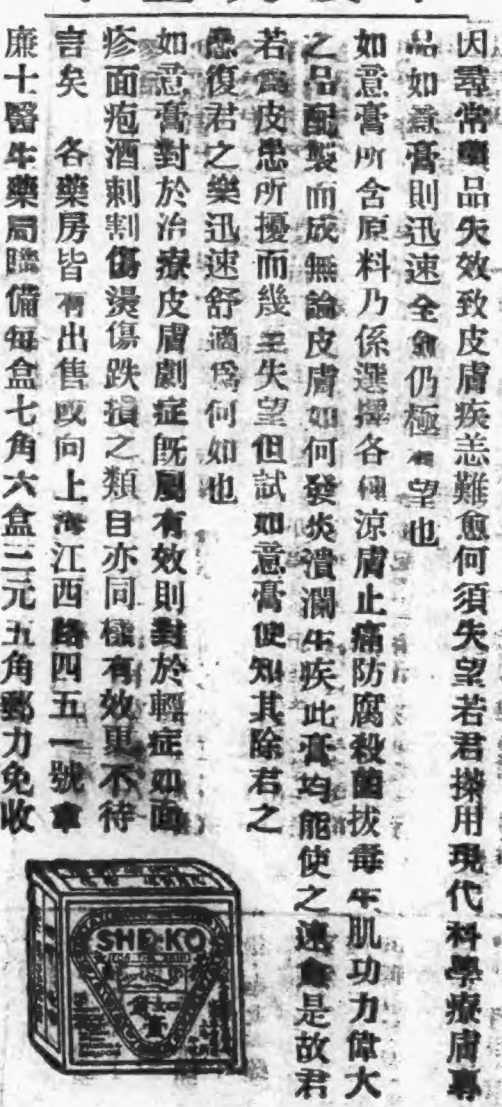 因尋常藥品失效致皮膚疾恙難愈何須失望若君搽用現代科學療膚專
品如意膏則迅速全愈仍極有望也
如意膏所含原料乃係選擇各種涼膚止痛防腐殺菌拔毒生肌功力偉大
之品配製而成無論皮膚如何發炎潰瀾生疾此膏均能使之速愈是故君
若為皮患所擾而幾至失望但試如意膏便知其除君之
患復君之樂迅速舒適為何如也
如意膏對於治療皮膚劇症既屬有效則對於輕症如面
疹面疱酒刺割傷燙傷跌損之類目亦同樣有效更不待
言矣 各藥房皆有出售或向上海江西路四五一號韋
廉士醫生藥局購備每盒七角六盒三元五角郵力免收
SHE-KO
如意膏